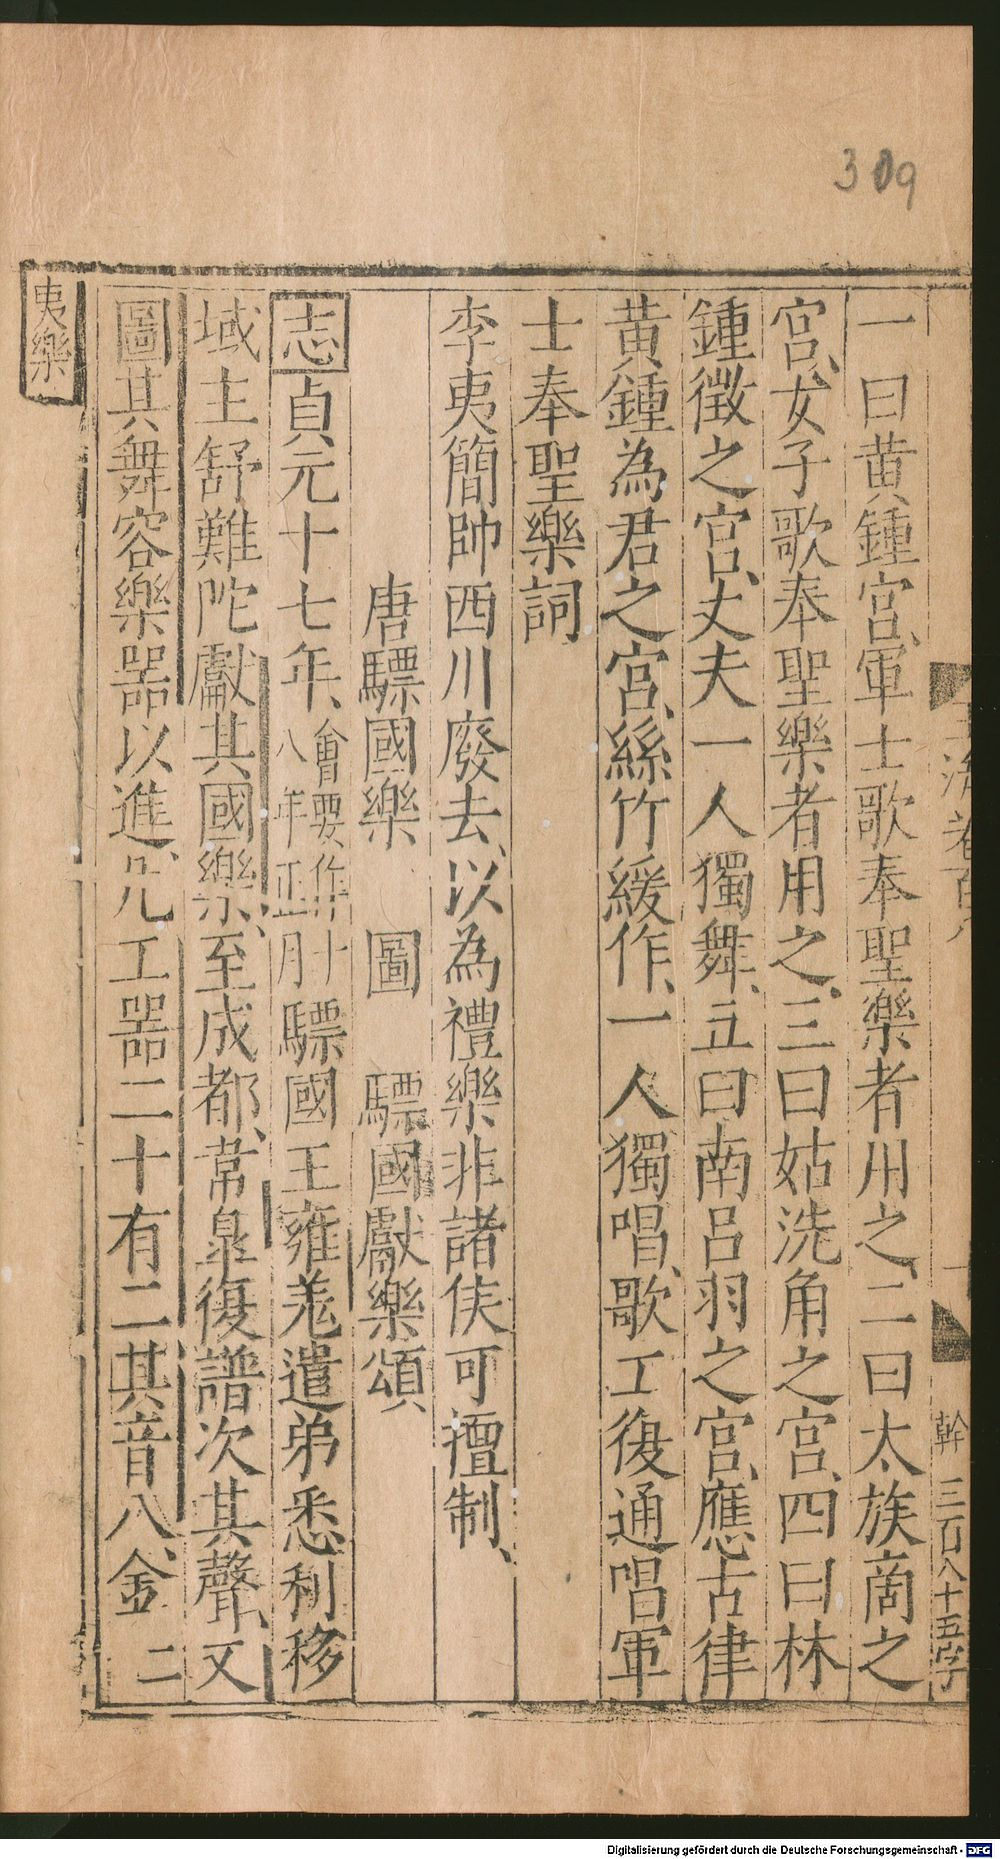 309
一曰黃鍾宮、軍士歌奉聖樂者用之、二曰太族商之
宮、女子歌奉聖樂者用之。三曰姑洗角之宮、四曰林
鍾徵之宮、丈夫一人獨舞、五曰南呂羽之宮、應古律
黃鍾為君之宮、絲竹緩作、一人獨唱、歌工復通唱軍
士奉聖樂詞
李夷簡帥西川廢去、以為禮樂非諸侯可擅制、
唐驃國樂　圖　驃國獻樂頌、
志貞元十七年、會要作十八年正月驃國王雍羌遣弟悉利移
域主舒難陀獻其國樂、至成都、韋皐復譜次其聲、又
圖其舞容樂器以進、凡工器二十有二其音八、金二
夷樂
幹 三百八十五字
Digitalisierung gefördert durch die Deutsche Forschungsgemeinschaft - DFG